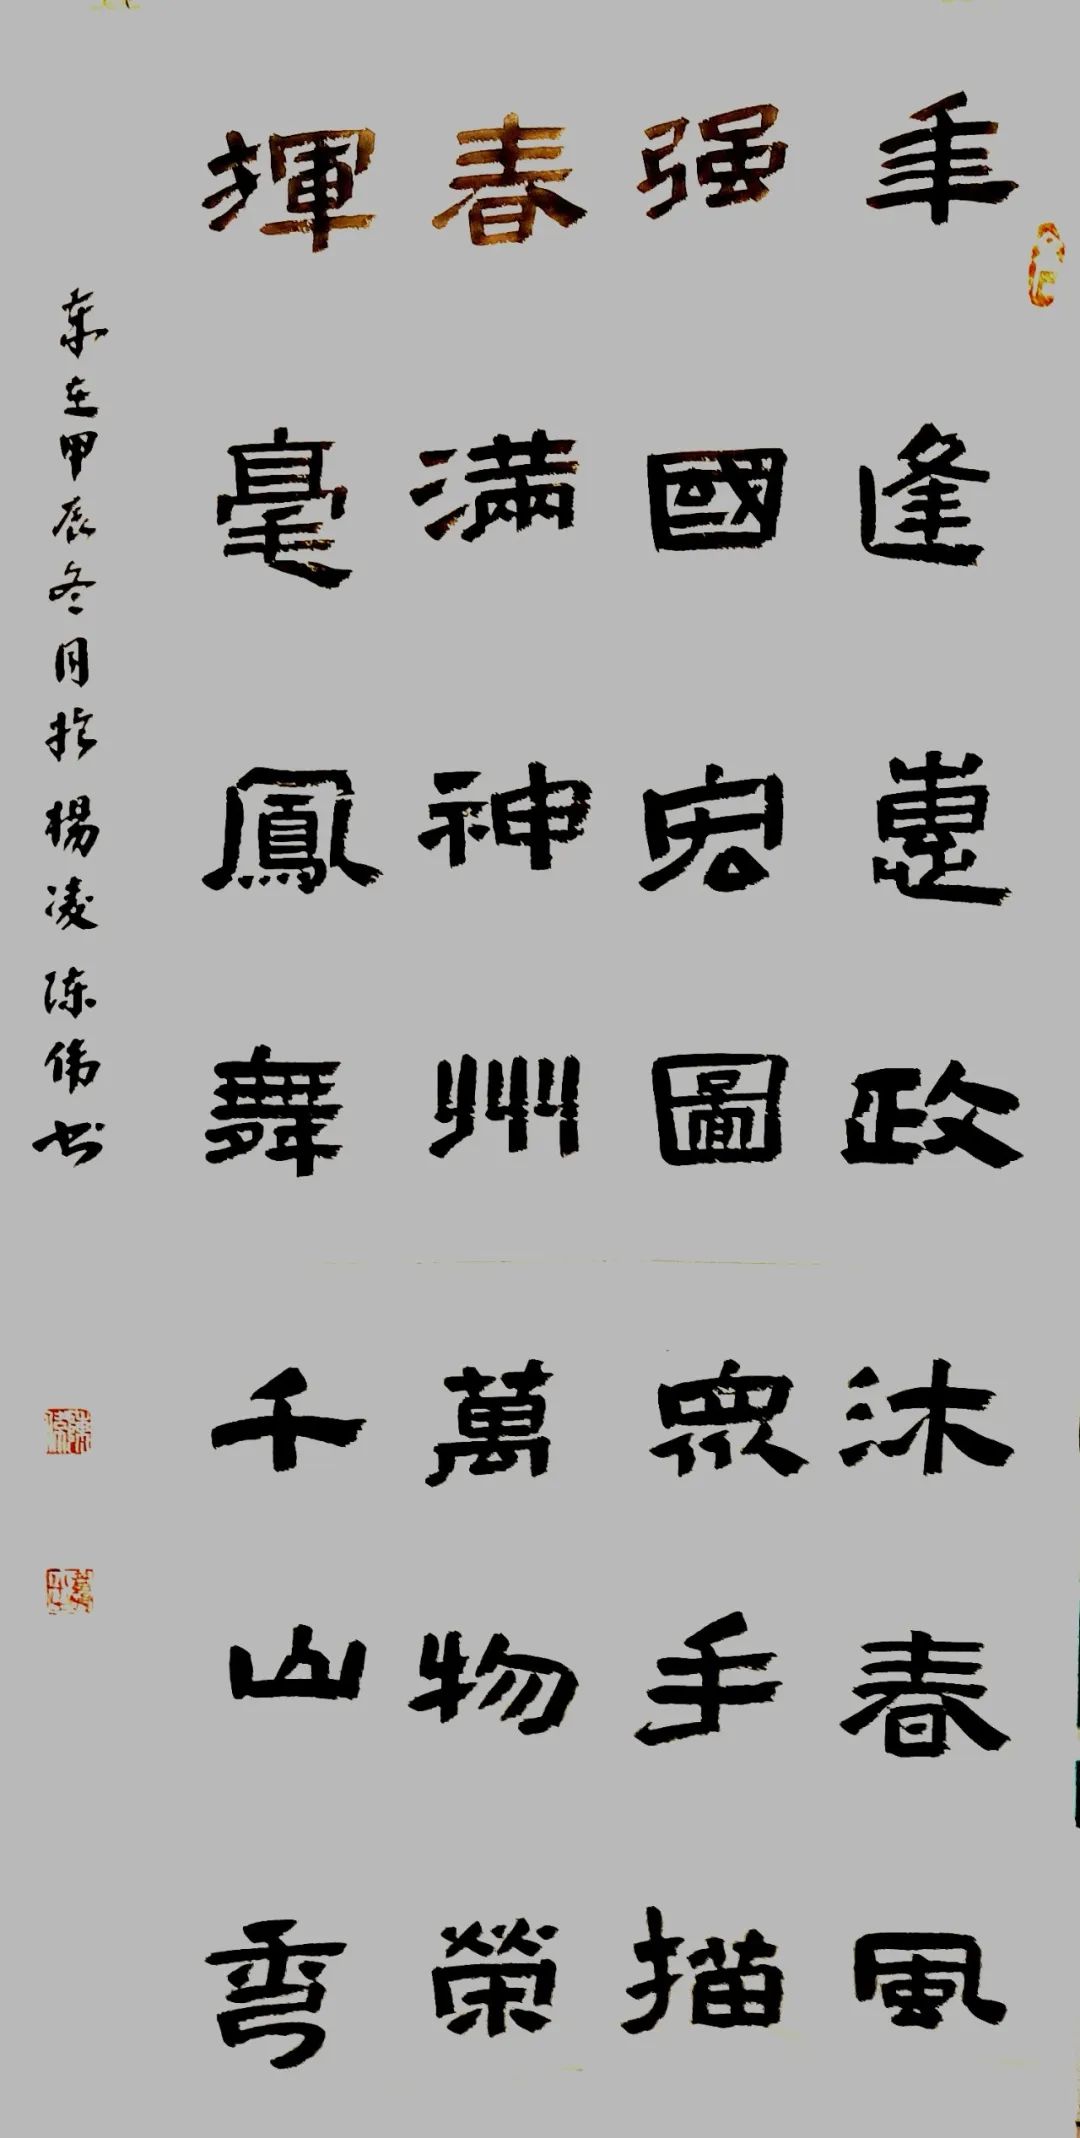 年逢惠政沐春风
强國宏圖眾手描
春滿神州萬物榮
揮毫鳳舞千山秀
岁在甲辰冬月於楊凌陈伟书